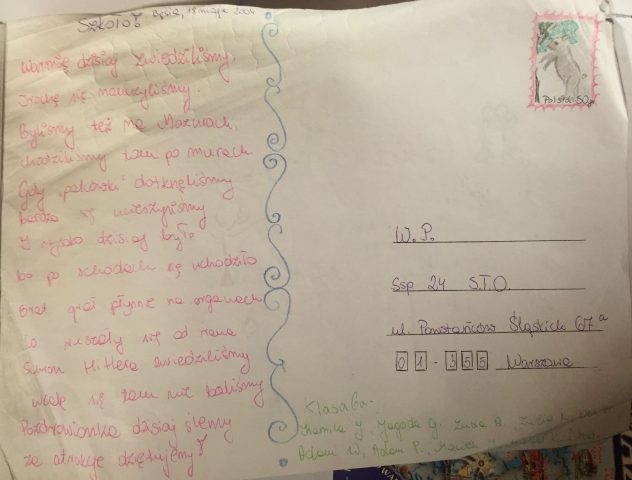 Szkoło! Bęsia, 18 maja 2004
Warmię dzisiaj zwiedziliśmy,
Trochę się nauczyliśmy.
Byliśmy też na Mazurach,
chodziliśmy tam po murach
Gdy „pakowski” dotknęliśmy
bardzo się ucieszyliśmy
I wysoko dzisiaj było
bo po schodach się wchodziło
Brat grał płynnie na organach
Co ruszały się od rana
Schron Hitlera zwiedziliśmy
wcale się tam nie baliśmy
Pozdrowionka dzisiaj ślemy
za atrakcje dziękujemy!
Polska 50
W. P.
Ssp 24 S.T.O.
ul. Powstańców Śląskich 67a
01-355 Warszawa
Klasa 6a.
Kamila J, Jagoda G,
Adam W, Adam P, Maciek